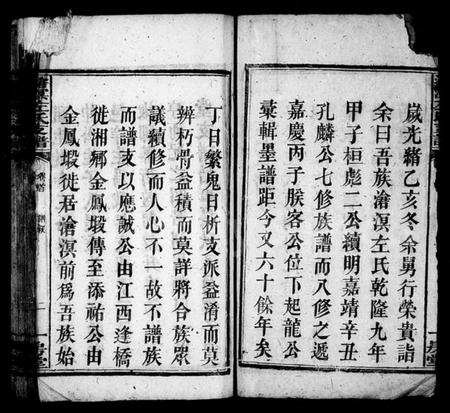 歲光緒乙亥冬余舅行榮貴詣
余曰吾族滄溟左氏乾隆九年
甲子桓彪二公續明嘉靖辛丑
孔麟公七修族譜而八修之遞
嘉慶丙子朕客公位下起龍公
彙輯墨譜距今又六十餘年矣
丁日繁鬼日析支派益淆而莫
辨朽骨益積而莫詳將合族眾
議續修而人心不一故不譜族
而譜支以應誠公由江西逢橋
徙湘鄉金鳳塅傳至添祐公由
金鳳塅徙居滄溟前為吾族始